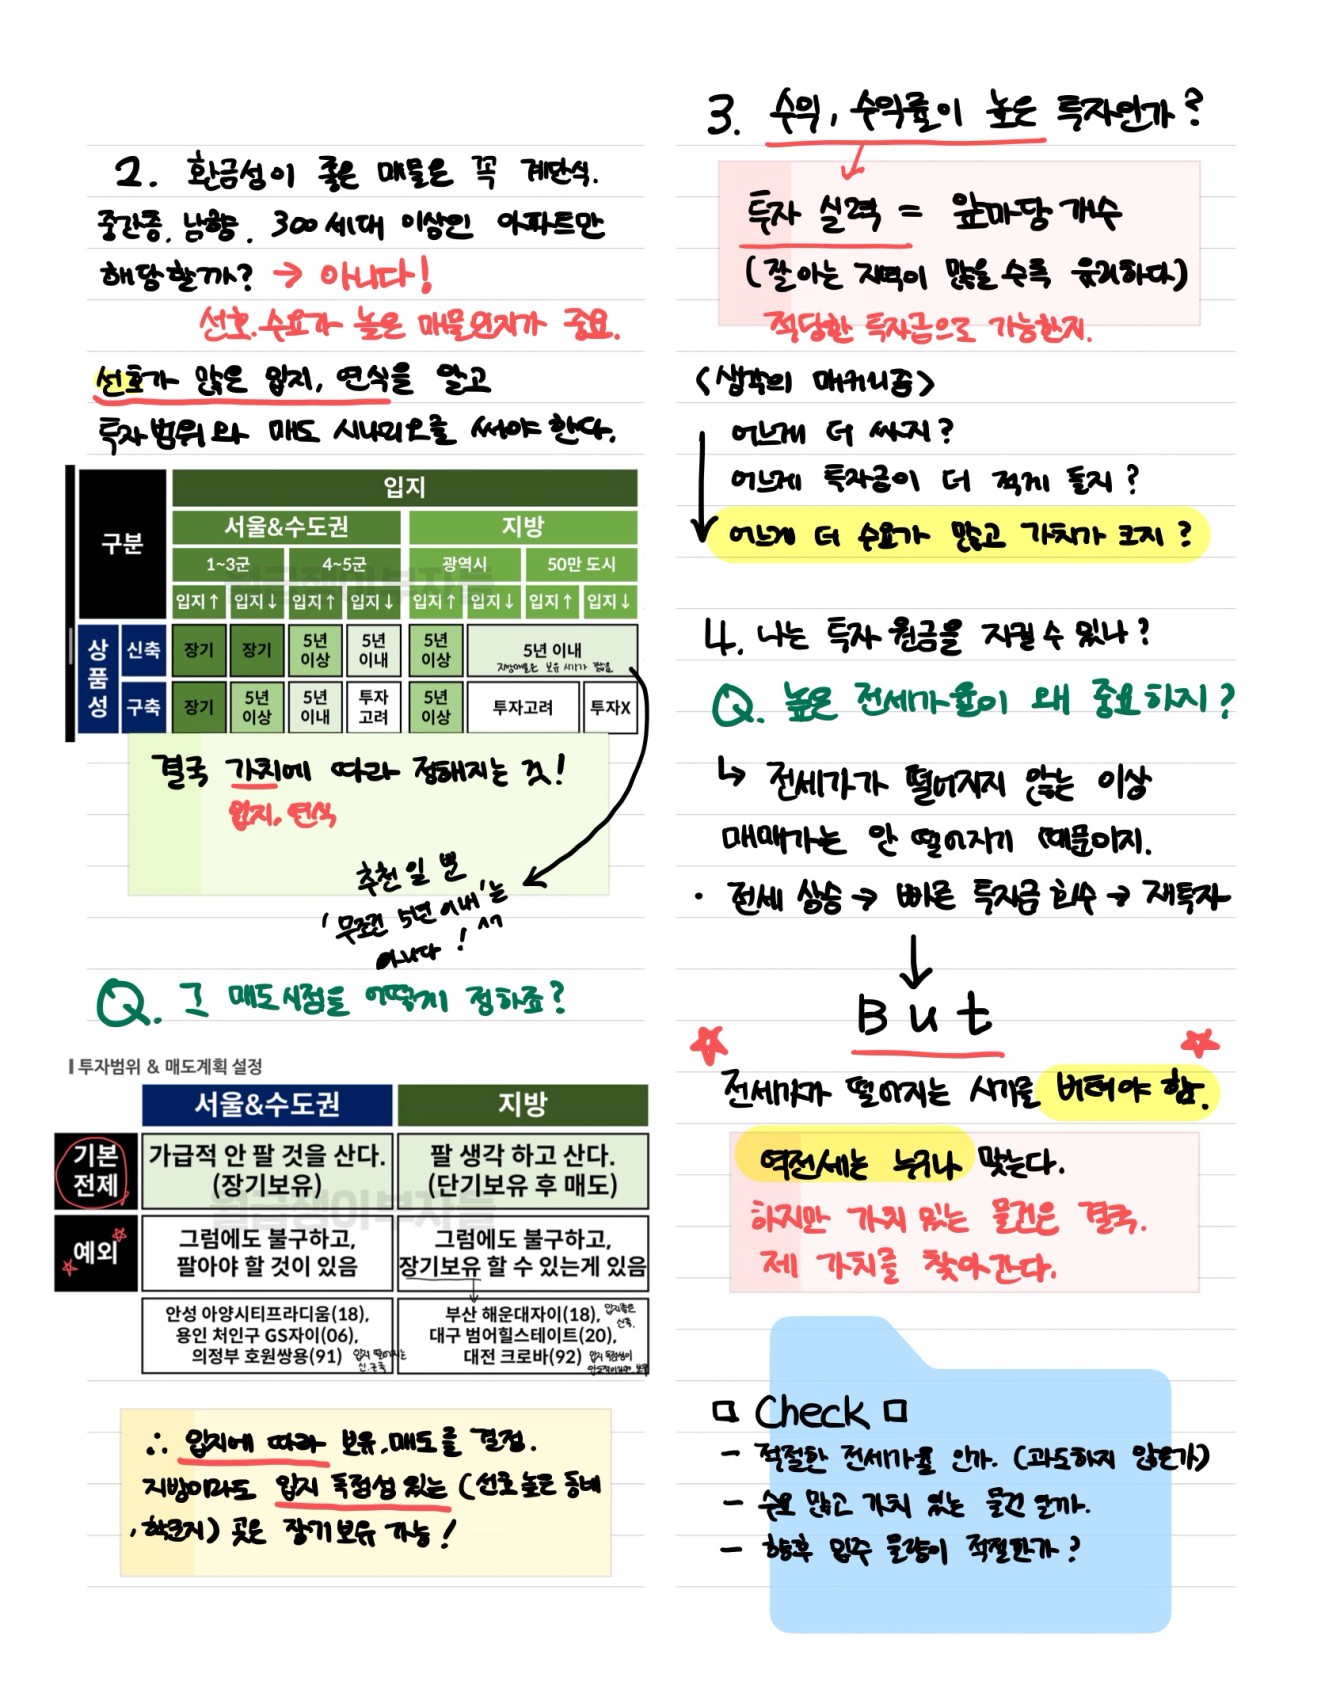 2. 환금성이 좋은 매물은 꼭 계단식.
중간층, 남향, 300세대 이상인 아파트만
해당할까? → 아니다!
선호.수요가 높은 매물인지가 중요.
선호가 많은 입지, 연식을 알고
투자범위와 매도 시나리오를 써야 한다.
구분
입지
서울&수도권
지방
1~3군
4~5군
광역시
50만 도시
입지↑ 입지↓ 입지↑ 입지↓ 입지↑ 입지↓ 입지↑ 입지↓
상품성
신축
장기
장기
5년 이상
5년 이내
5년 이상
5년 이내
지방매물은 보유 시기가 짧음
구축
장기
5년 이상
5년 이내
투자 고려
5년 이상
투자고려
투자X
월급쟁이부자들
결국 가치에 따라 정해지는 것!
입지, 연식
추천일 뿐
'무조건 5년 이내'는
아니다!
Q. 그 매도시점을 어떻게 정하죠?
투자범위 & 매도계획 설정
서울&수도권
지방
기본 전제
가급적 안 팔 것을 산다.
(장기보유)
팔 생각 하고 산다.
(단기보유 후 매도)
월급쟁이부자들
예외
그럼에도 불구하고,
팔아야 할 것이 있음
그럼에도 불구하고,
장기보유 할 수 있는게 있음
안성 아양시티프라디움(18),
용인 처인구 GS자이(06),
의정부 호원쌍용(91)
입지 떨어지는
신.구축
부산 해운대자이(18),
입지좋은
신축.
대구 범어힐스테이트(20),
대전 크로바(92)
입지 독점성이
∴ 입지에 따라 보유.매도를 결정.
지방이라도 입지 독점성 있는 (선호 높은 동네
, 학군지) 곳은 장기보유 가능!
3. 수익, 수익률이 높은 투자인가?
투자 실력 = 앞마당 개수
(잘아는 지역이 많을 수록 유리하다)
적당한 투자금으로 가능한지.
<생각의 매커니즘>
어느게 더 싸지?
어느게 투자금이 더 적게 들지?
어느게 더 수요가 많고 가치가 크지?
4. 나는 투자 원금을 지킬 수 있나?
Q. 높은 전세가율이 왜 중요하지?
↳ 전세가가 떨어지지 않는 이상
매매가는 안 떨어지기 때문이지.
· 전세 상승 → 빠른 투자금 회수 → 재투자
But
전세가가 떨어지는 시기를 버텨야 함.
역전세는 누구나 맞는다.
하지만 가치 있는 물건은 결국.
제 가치를 찾아간다.
□ Check □
- 적절한 전세가율 인가. (과도하지 않은가)
- 수요 많고 가치 있는 물건 일까.
- 향후 입주 물량이 적절한가?